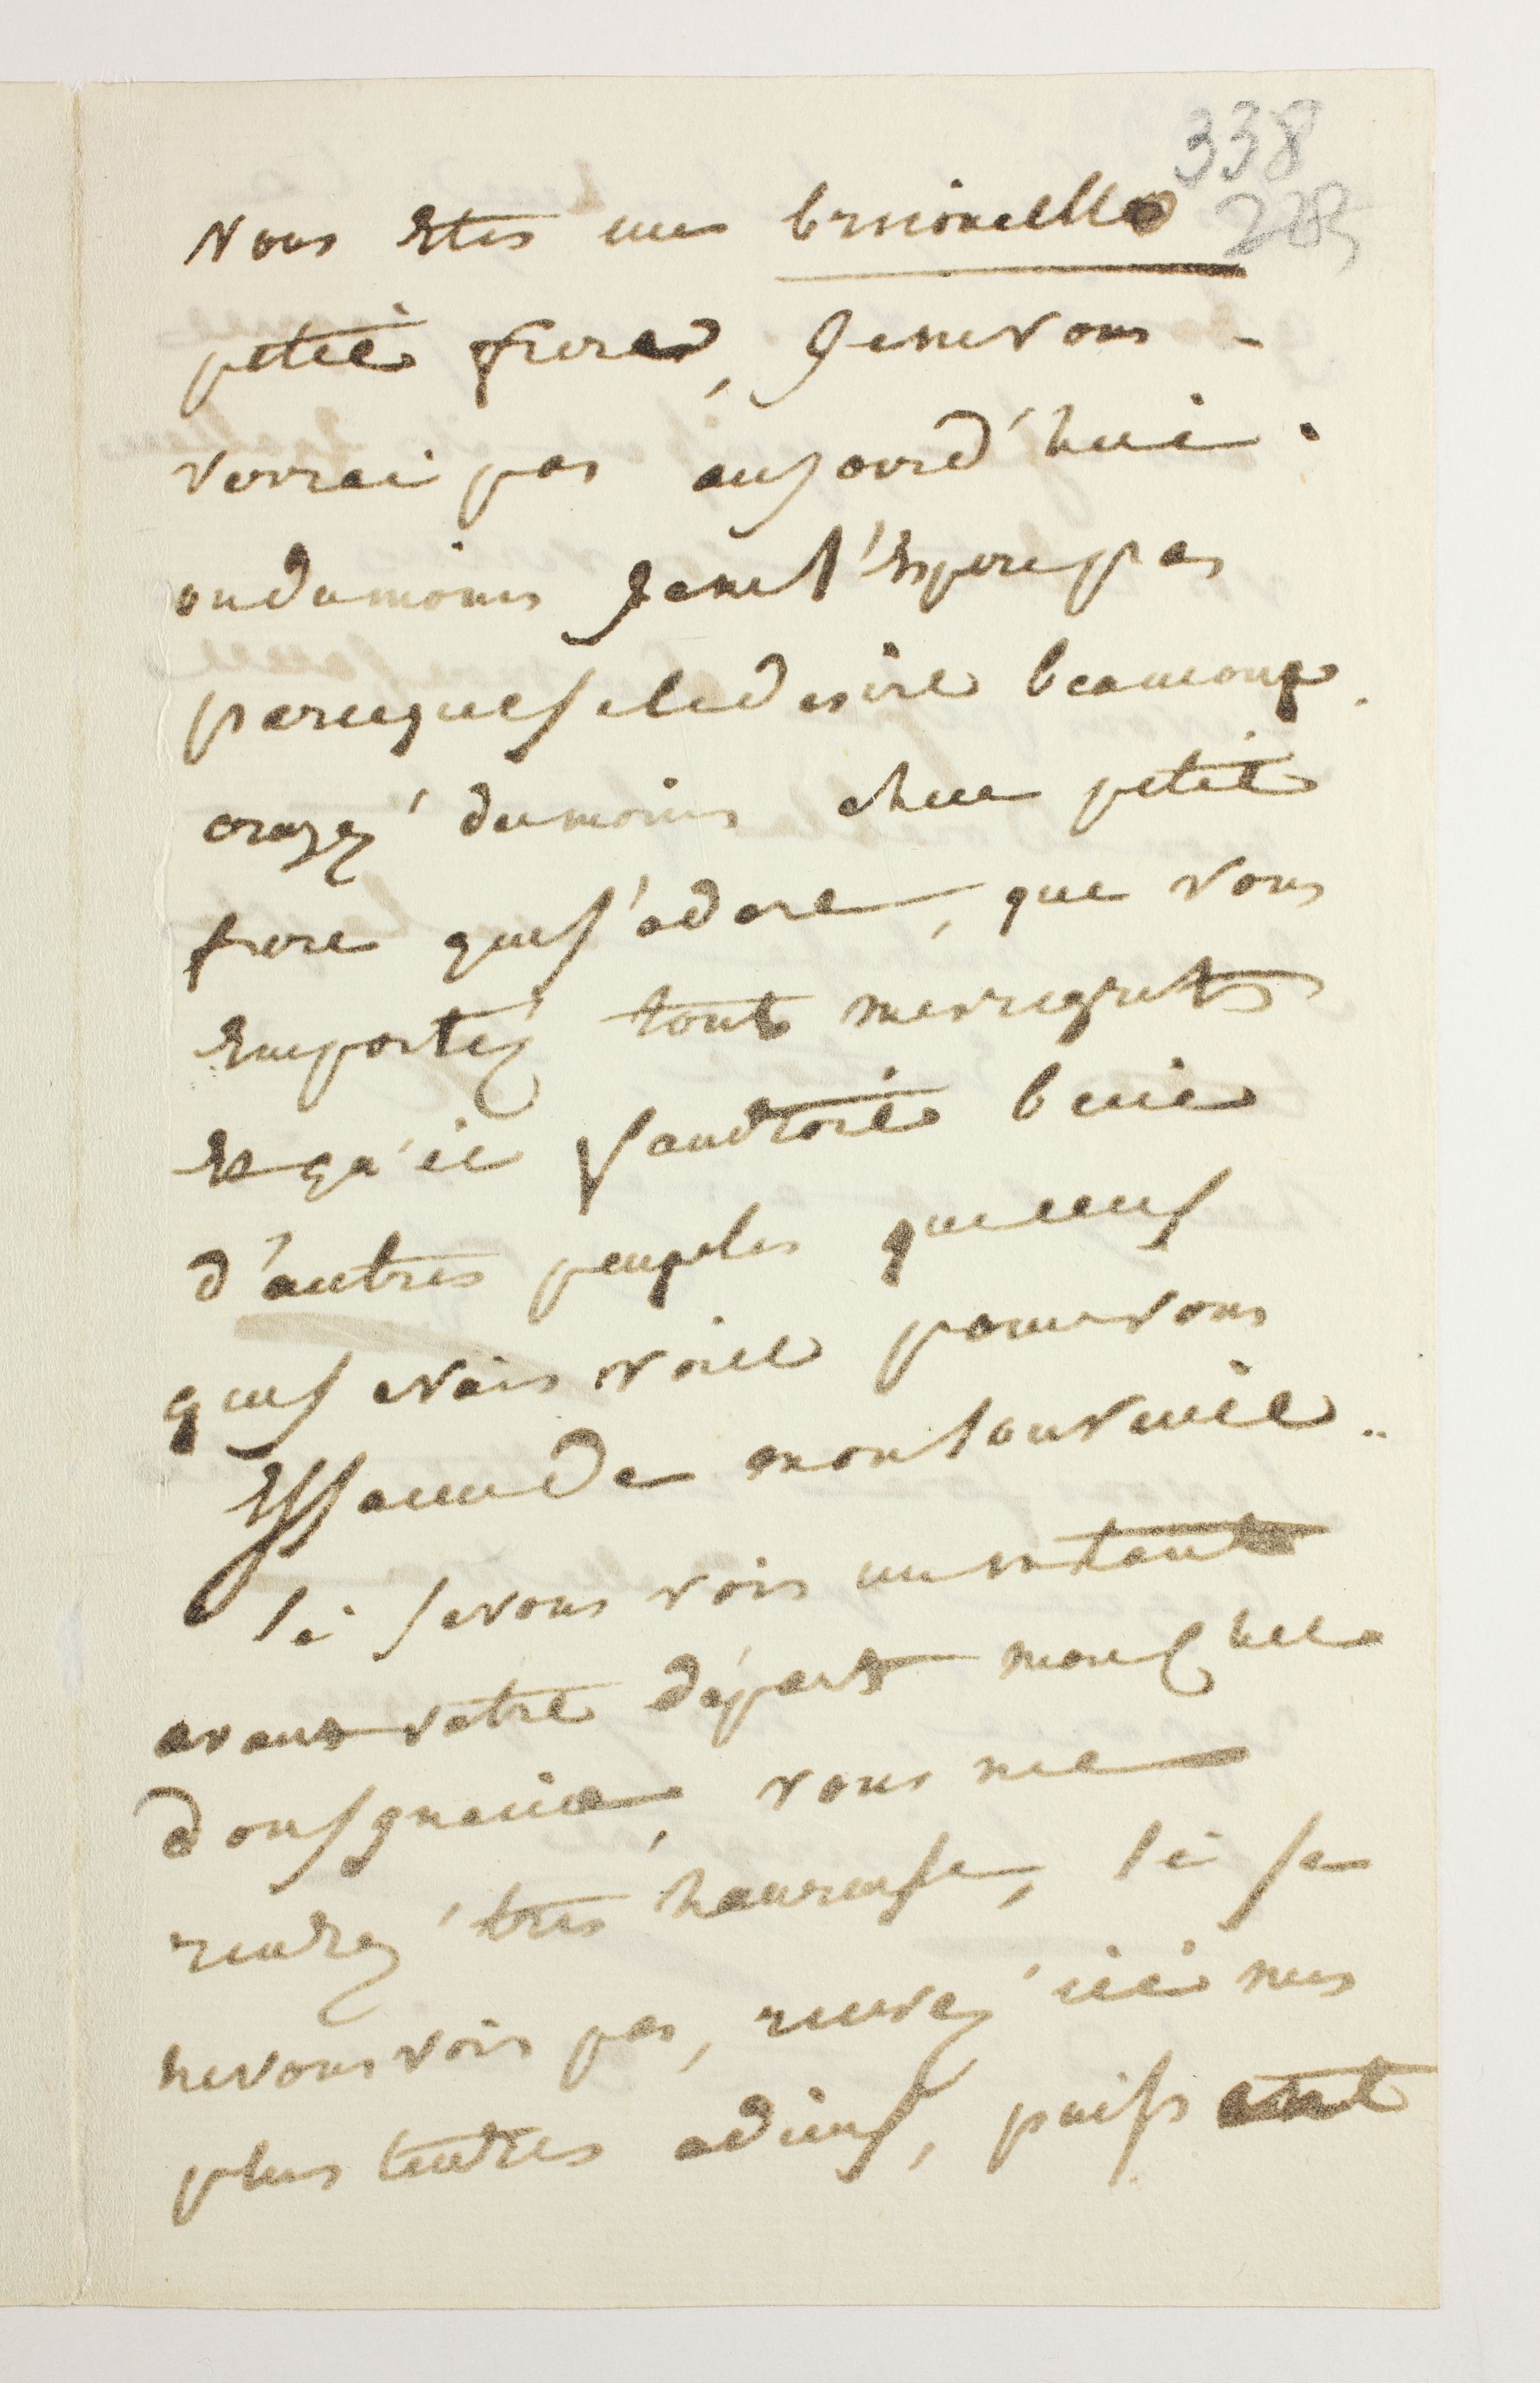 338
228
vous etes une
petit frere, je ne vous -
verrai pas aujourd'hui.
ou du moins je ne l'espere pas
parceque je le desire beaucoup.
croyez' du moins cher petit
frere que j'adore, que vous
emportez tout mes regrets
et qu'il faudroit bien
d'autres peuples que ceux
que je vais voir pour vous
effacer de mon souvenir..
si je vous vois un instant
avant votre départ mon cher
domjguaiie, vous me
rendrez' très heureuse, si je
ne vous vois pas, recevez' ici mes
plus tendres adieux, puissent